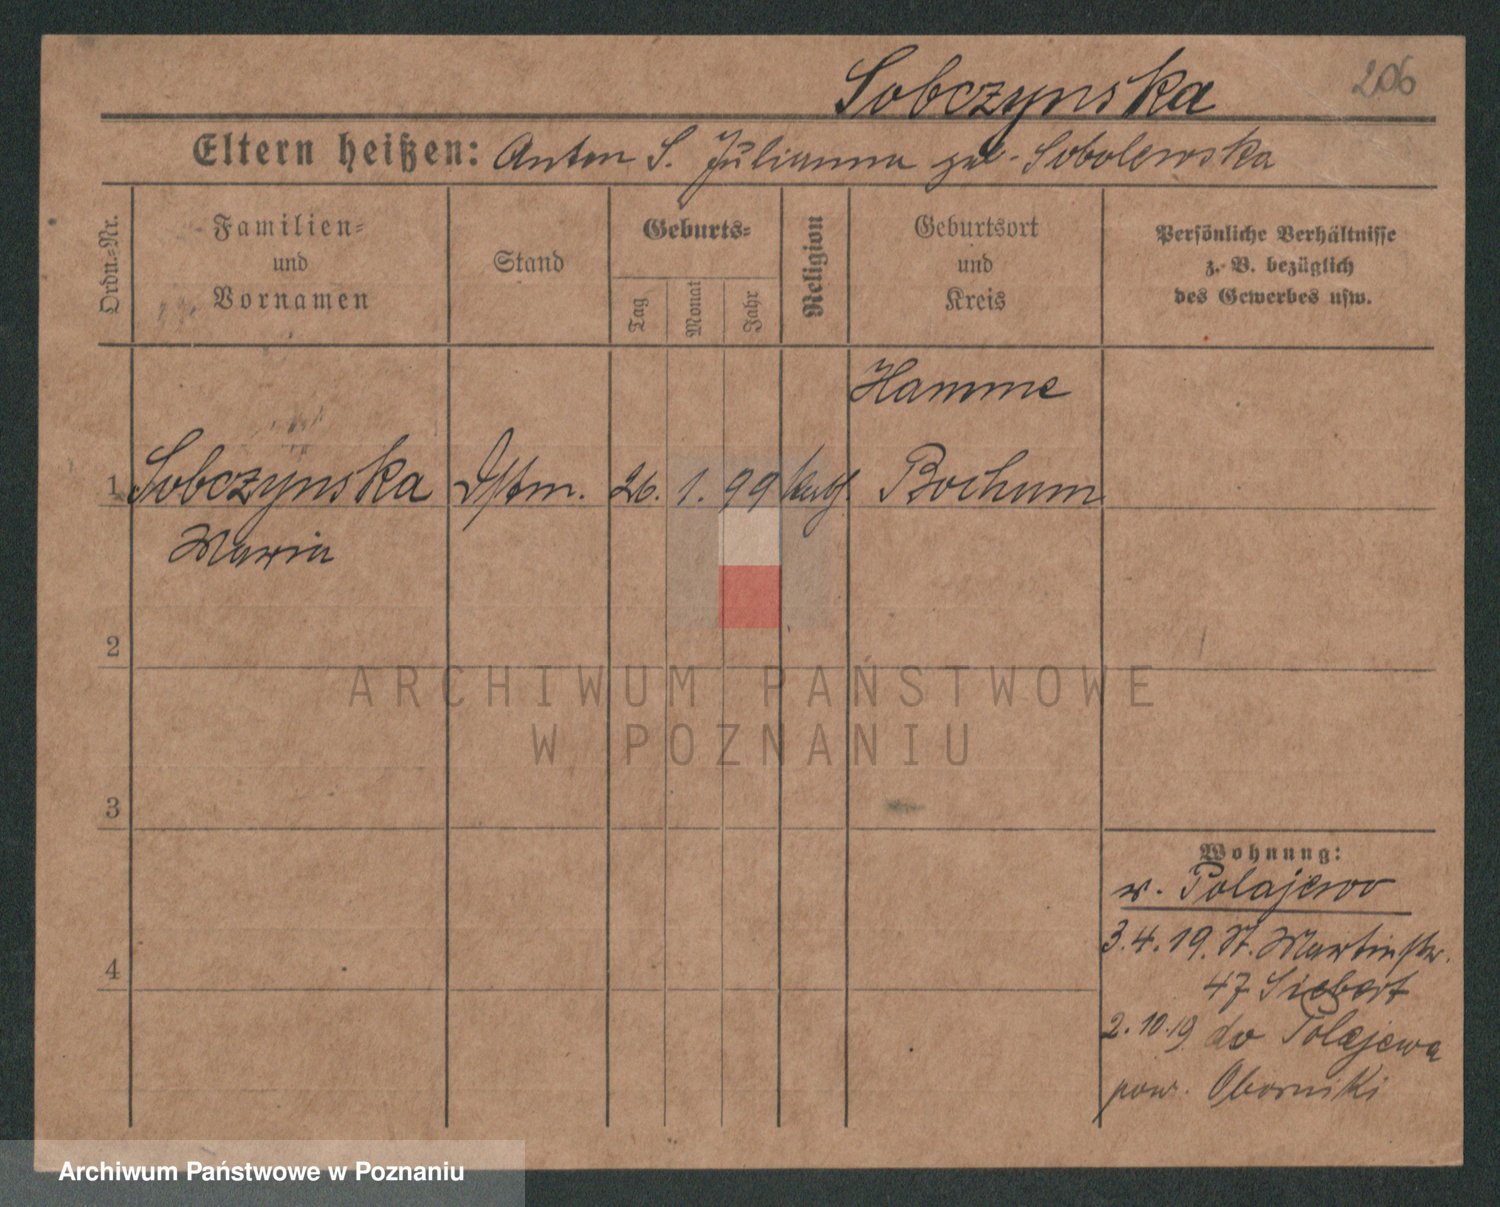 Sobczynska
206
Eltern heißen: Anton S. Julianna geb. Sobolewska
Ordn.-Nr.
Familien-
und
Vornamen
Stand
Geburts-
Tag
Monat
Jahr
Religion
Geburtsort
und
Kreis
Persönliche Verhältnisse
z. B. bezüglich
des Gewerbes usw.
Hamme
1 Sobczynska Dstm. 26. 1. 99 kath. Bochum
Maria
2
3
4
Wohnung:
v. Polajewo
3.4.19. St. Martinstr.
47 Siebert
2.10.19 do Polajewa
pow. Oborniki
ARCHIWUM PAŃSTWOWE
W POZNANIU
Archiwum Państwowe w Poznaniu